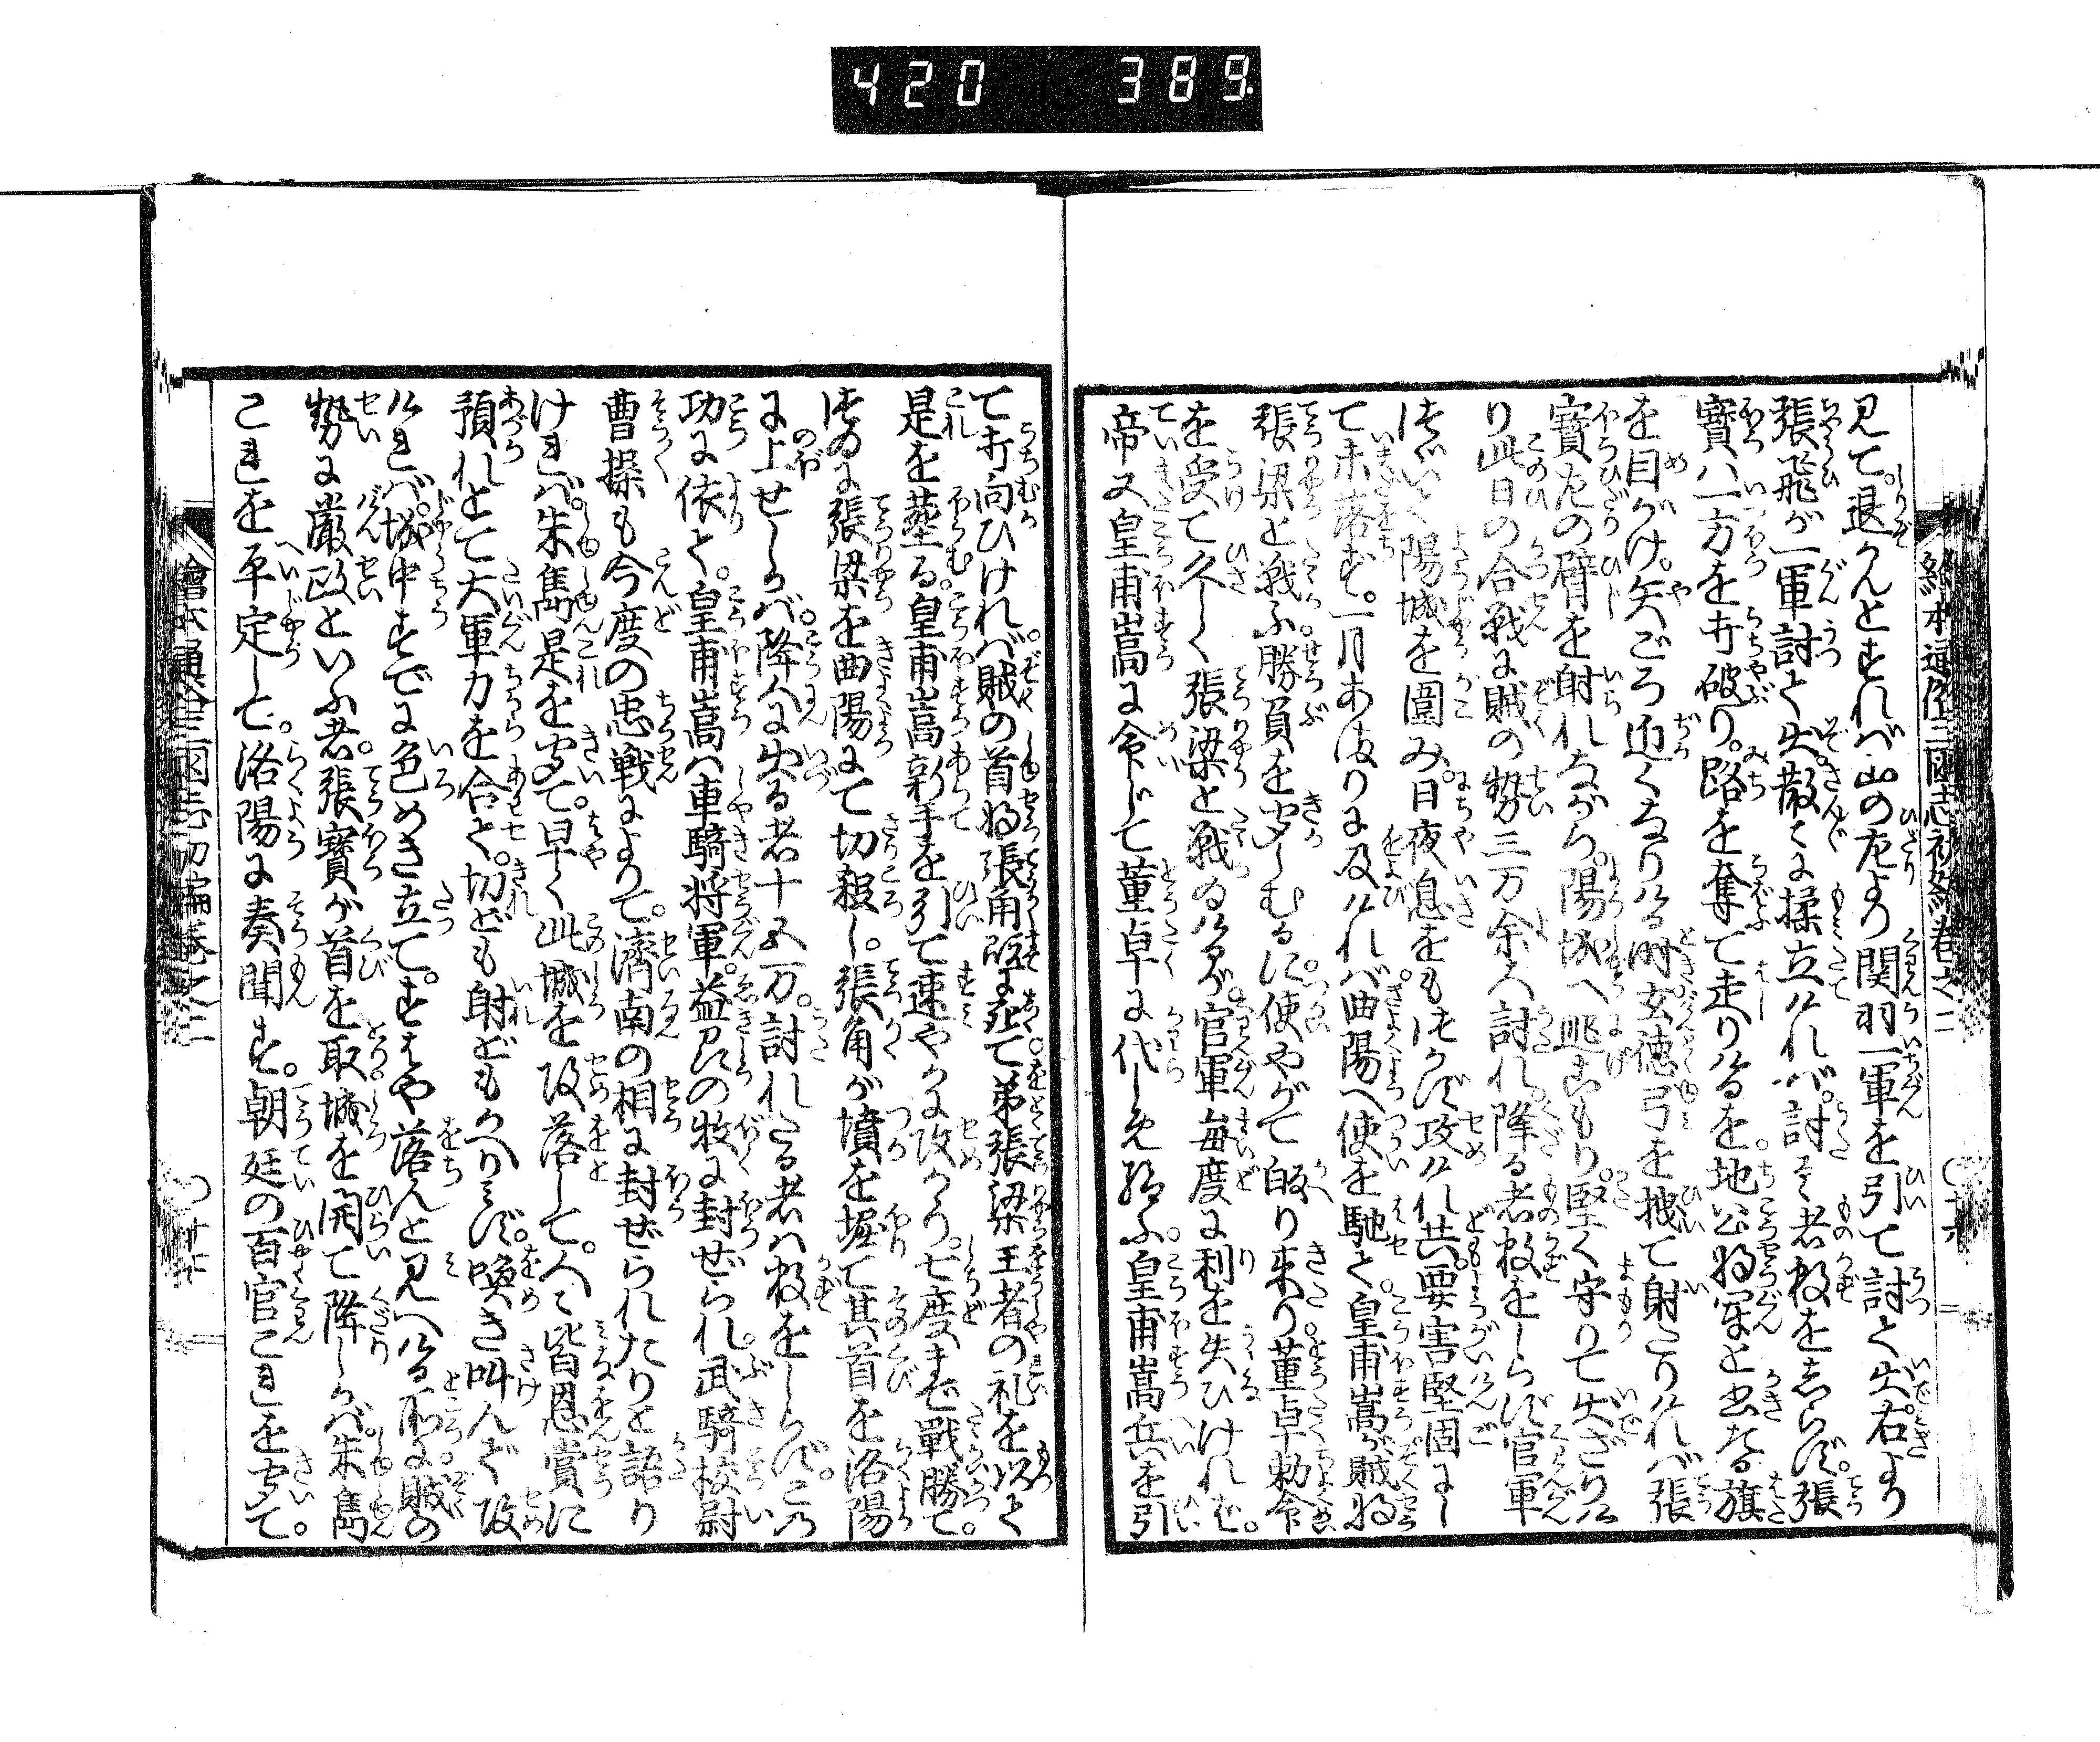 420 389
絵本通俗三国志初編巻之二
見て。退かんとすれバ。山の左より関羽一軍を引て討て出。右より
張飛が一軍討て出。散々に揉立けれバ。討るゝ者数をしらず。張
寳ハ一方を打破り。路を奪て走りけるを。地公将軍と書たる旗
を目がけ。矢ごろ近くなりける時。玄徳弓を拽て射たりけれバ張
寳左の臂を射れながら。陽城へ逃こもり。堅く守りて出ざりけ
り此日の合戦に賊の勢三万余人討れ。降る者数をしらず官軍
つゞいて陽城を圍み。日夜息をもつかず攻けれ共。要害堅固にし
て未落ず。一月あまりに及けれバ。曲陽へ使を馳て。皇甫嵩が賊将
張梁と戦ふ勝負を聞しむるに。使やがて皈り来り。董卓勅命
を受て久しく張梁と戦ゐけるが。官軍毎度に利を失ひければ。
帝又皇甫嵩に命じて董卓に代しめ給ふ。皇甫嵩兵を引
て打向ひけれバ。賊の首将張角既に死て。弟張梁王者の礼を以て
是を葬る。皇甫嵩新手を引て速やかに攻かゝり。七度まで戰勝て。
つゐに張梁を曲陽にて切殺し。張角が墳を堀て其首を洛陽
に上せしかバ。降人に出る者十五万。討れたる者ハ数をしらず。この
功に依て。皇甫嵩ハ車騎将軍。益州の牧に封ぜられ。武騎校尉
曹操も今度の忠戦によりて。濟南の相に封ぜられたりと語り
けれバ。朱雋是を聞て。早く此城を攻落して。人々皆恩賞に
預れとて大軍力を合て。切ども射どもかへりミず。喚き叫んで攻
けれバ。城中すでに色めき立て。すハや落んと見へける所に。賊の
勢に嚴政といふ者。張寳が首を取。城を開て降しかバ。朱雋
これを平定して。洛陽に奏聞す。朝廷の百官これを聞て。
繪本通俗三国志初編巻之二